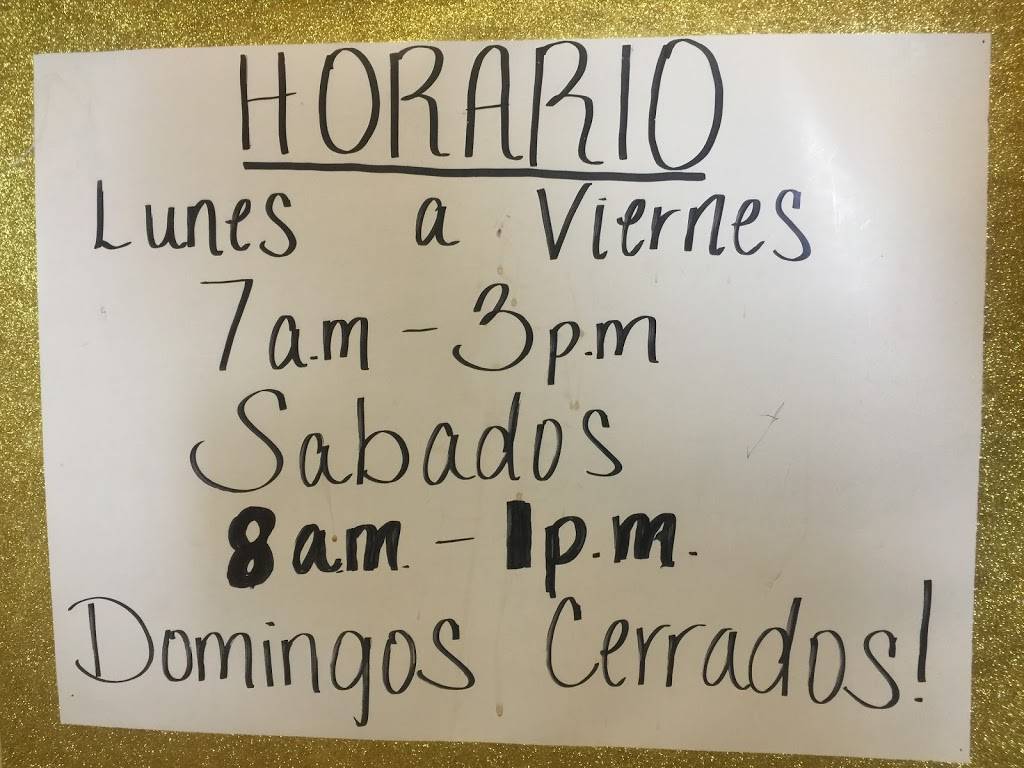 HORARIO
Lunes a Viernes
7a.m - 3p.m
Sabados
8a.m. - 1p.m.
Domingos Cerrados!